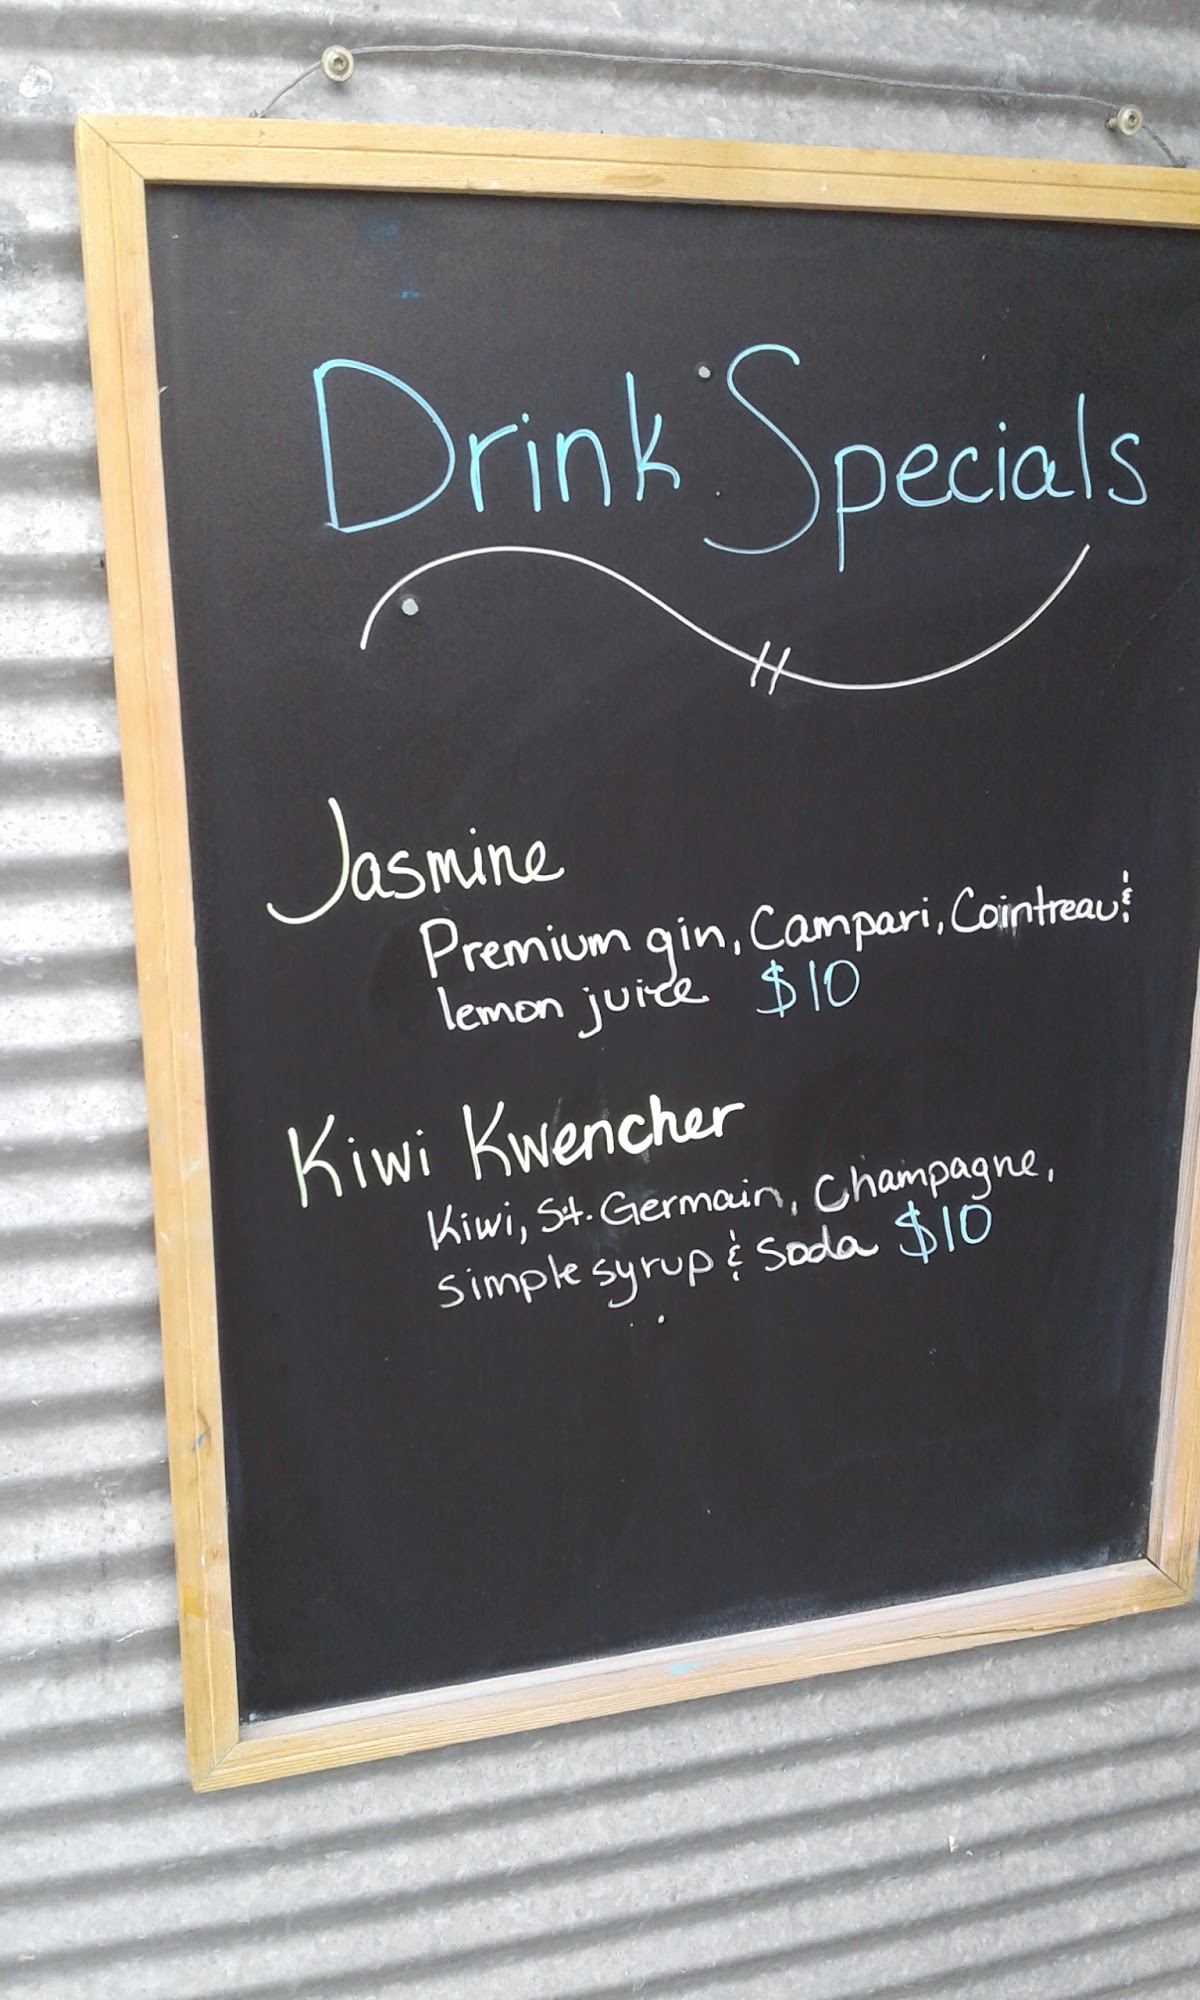 Drink Specials
Jasmine
Premium gin, Campari, Cointreau &
lemon juice $10
Kiwi Kwencher
Kiwi, St. Germain, Champagne,
simple syrup & Soda $10